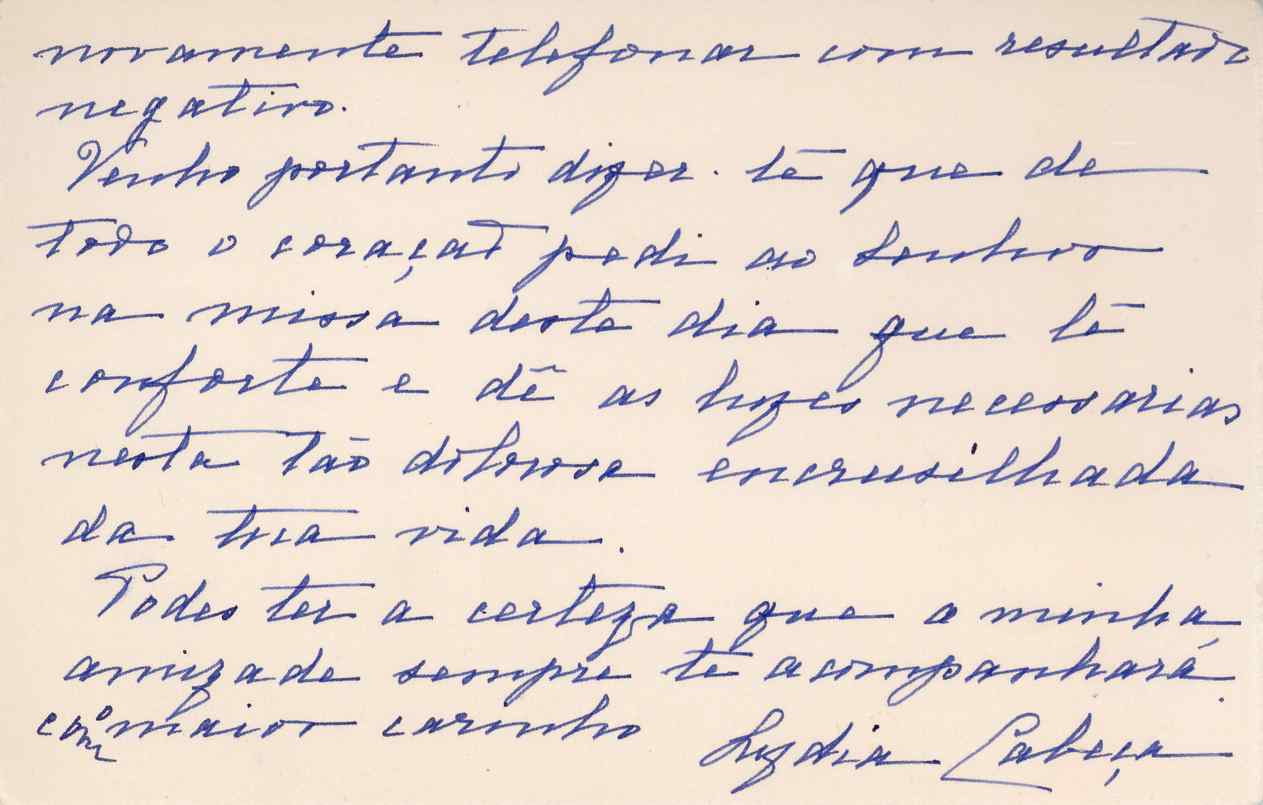 novamente telefonar com resultado
negativo.
Venho portanto dizer-te que de
todo o coração pedi ao Senhor
na missa deste dia que te
conforte e dê as luzes necessarias
nesta tão dolorosa encrusilhada
da tua vida.
Podes ter a certeza que a minha
amizade sempre te acompanhará
com o maior carinho Lydia Cabeça